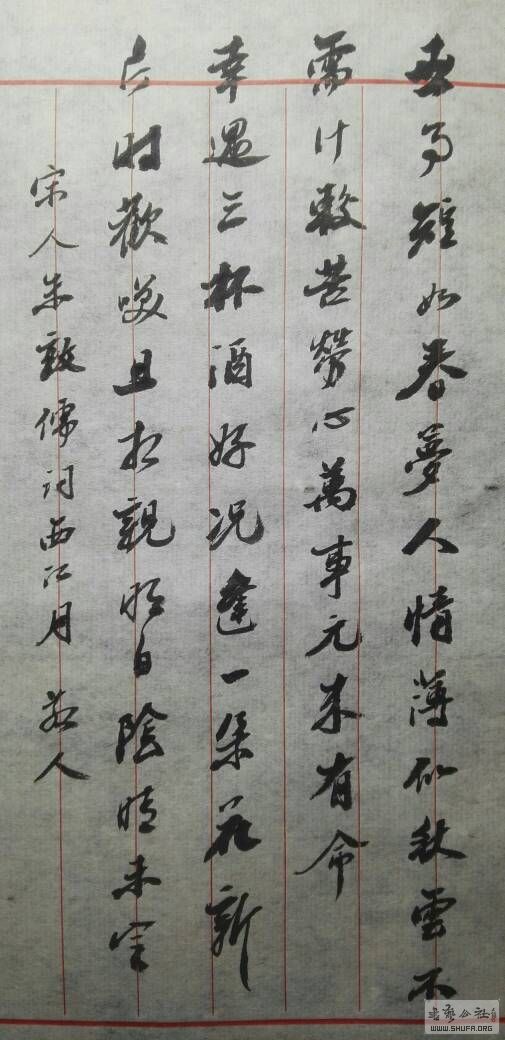 世事短如春夢人情薄似秋雲不
需计較苦勞心萬事元来有命
幸遇三杯酒好况逢一朵花新
片时歡笑且相親明日陰晴未定
宋人朱敦儒词西江月 人
書藝公社
WWW.SHUFA.ORG